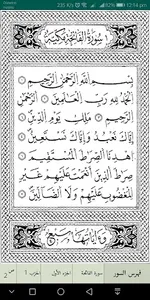 235 K/s 12:14 pm
سورة الفاتحة مكية
بسم الله الرحمن الرحيم
الحمد لله رب العالمين الرحمن
الرحيم ملك يوم الدين
إياك نعبد وإياك نستعين
اهدنا الصرط المستقيم
صرط الذين أنعمت عليهم غير
المغضوب عليهم ولا الضالين
وآياتها سبع
فهرس السور سورة الفاتحة الجزء الأول الحزب 1